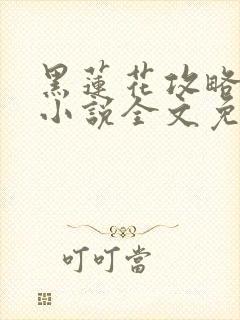 黑蓮花攻略
小說全文免
叮叮當